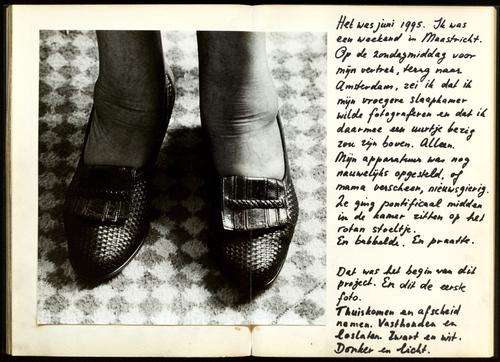 Het was juni 1995. Ik was
een weekend in Maastricht.
Op de zondagmiddag voor
mijn vertrek, terug naar
Amsterdam, zei ik dat ik
mijn vroegere slaapkamer
wilde fotograferen en dat ik
daarmee een uurtje bezig
zou zijn boven. Alleen.
Mijn apparatuur was nog
nauwelijks opgesteld, of
mama verscheen, nieuwsgierig.
Ze ging pontificaal midden
in de kamer zitten op het
rotan stoeltje.
En babbelde. En praatte.
Dat was het begin van dit
project. En dit de eerste
foto.
Thuiskomen en afscheid
nemen. Vasthouden en
loslaten. Zwart en wit.
Donker en licht.